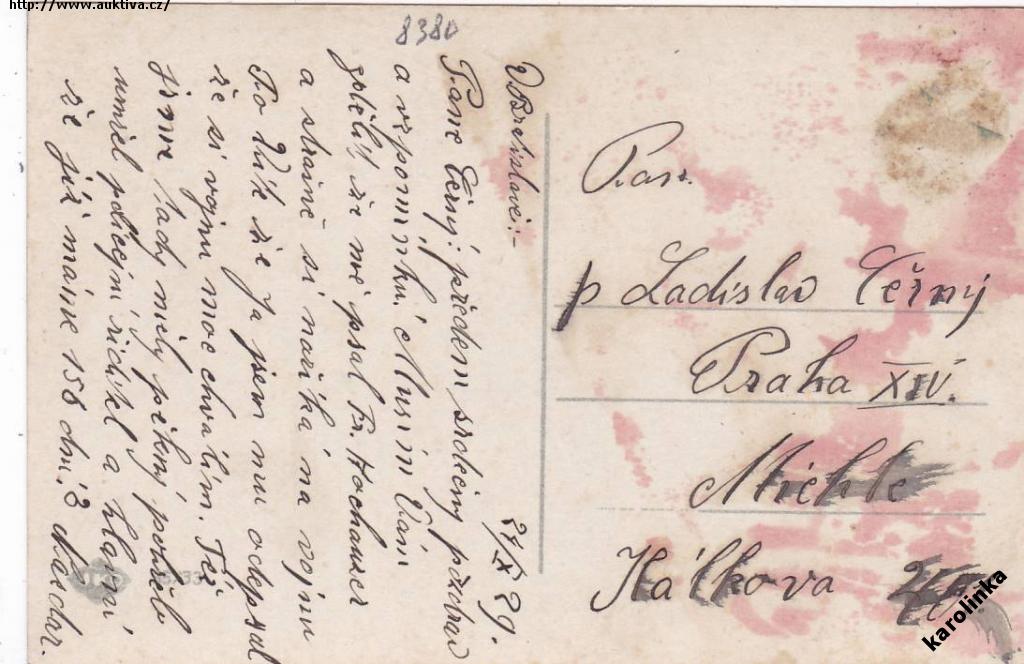 http://www.auktiva.cz/
8380
27/X 29.
Pane Černý: předem srdečný pozdrav
a vzpomínku. Musím Vám
že mě psal Fr. Hochauser
a strašně si naříká na vojnu
To Vík že Ja jsem mu odepsal
že si vojnu moc chválím. Též
jsme tady měly pěkný
a hlavní
že již máme 158 dní.
Pan.
p Ladislav Černý
Praha XIV.
Michle
Hálkova
karolinka